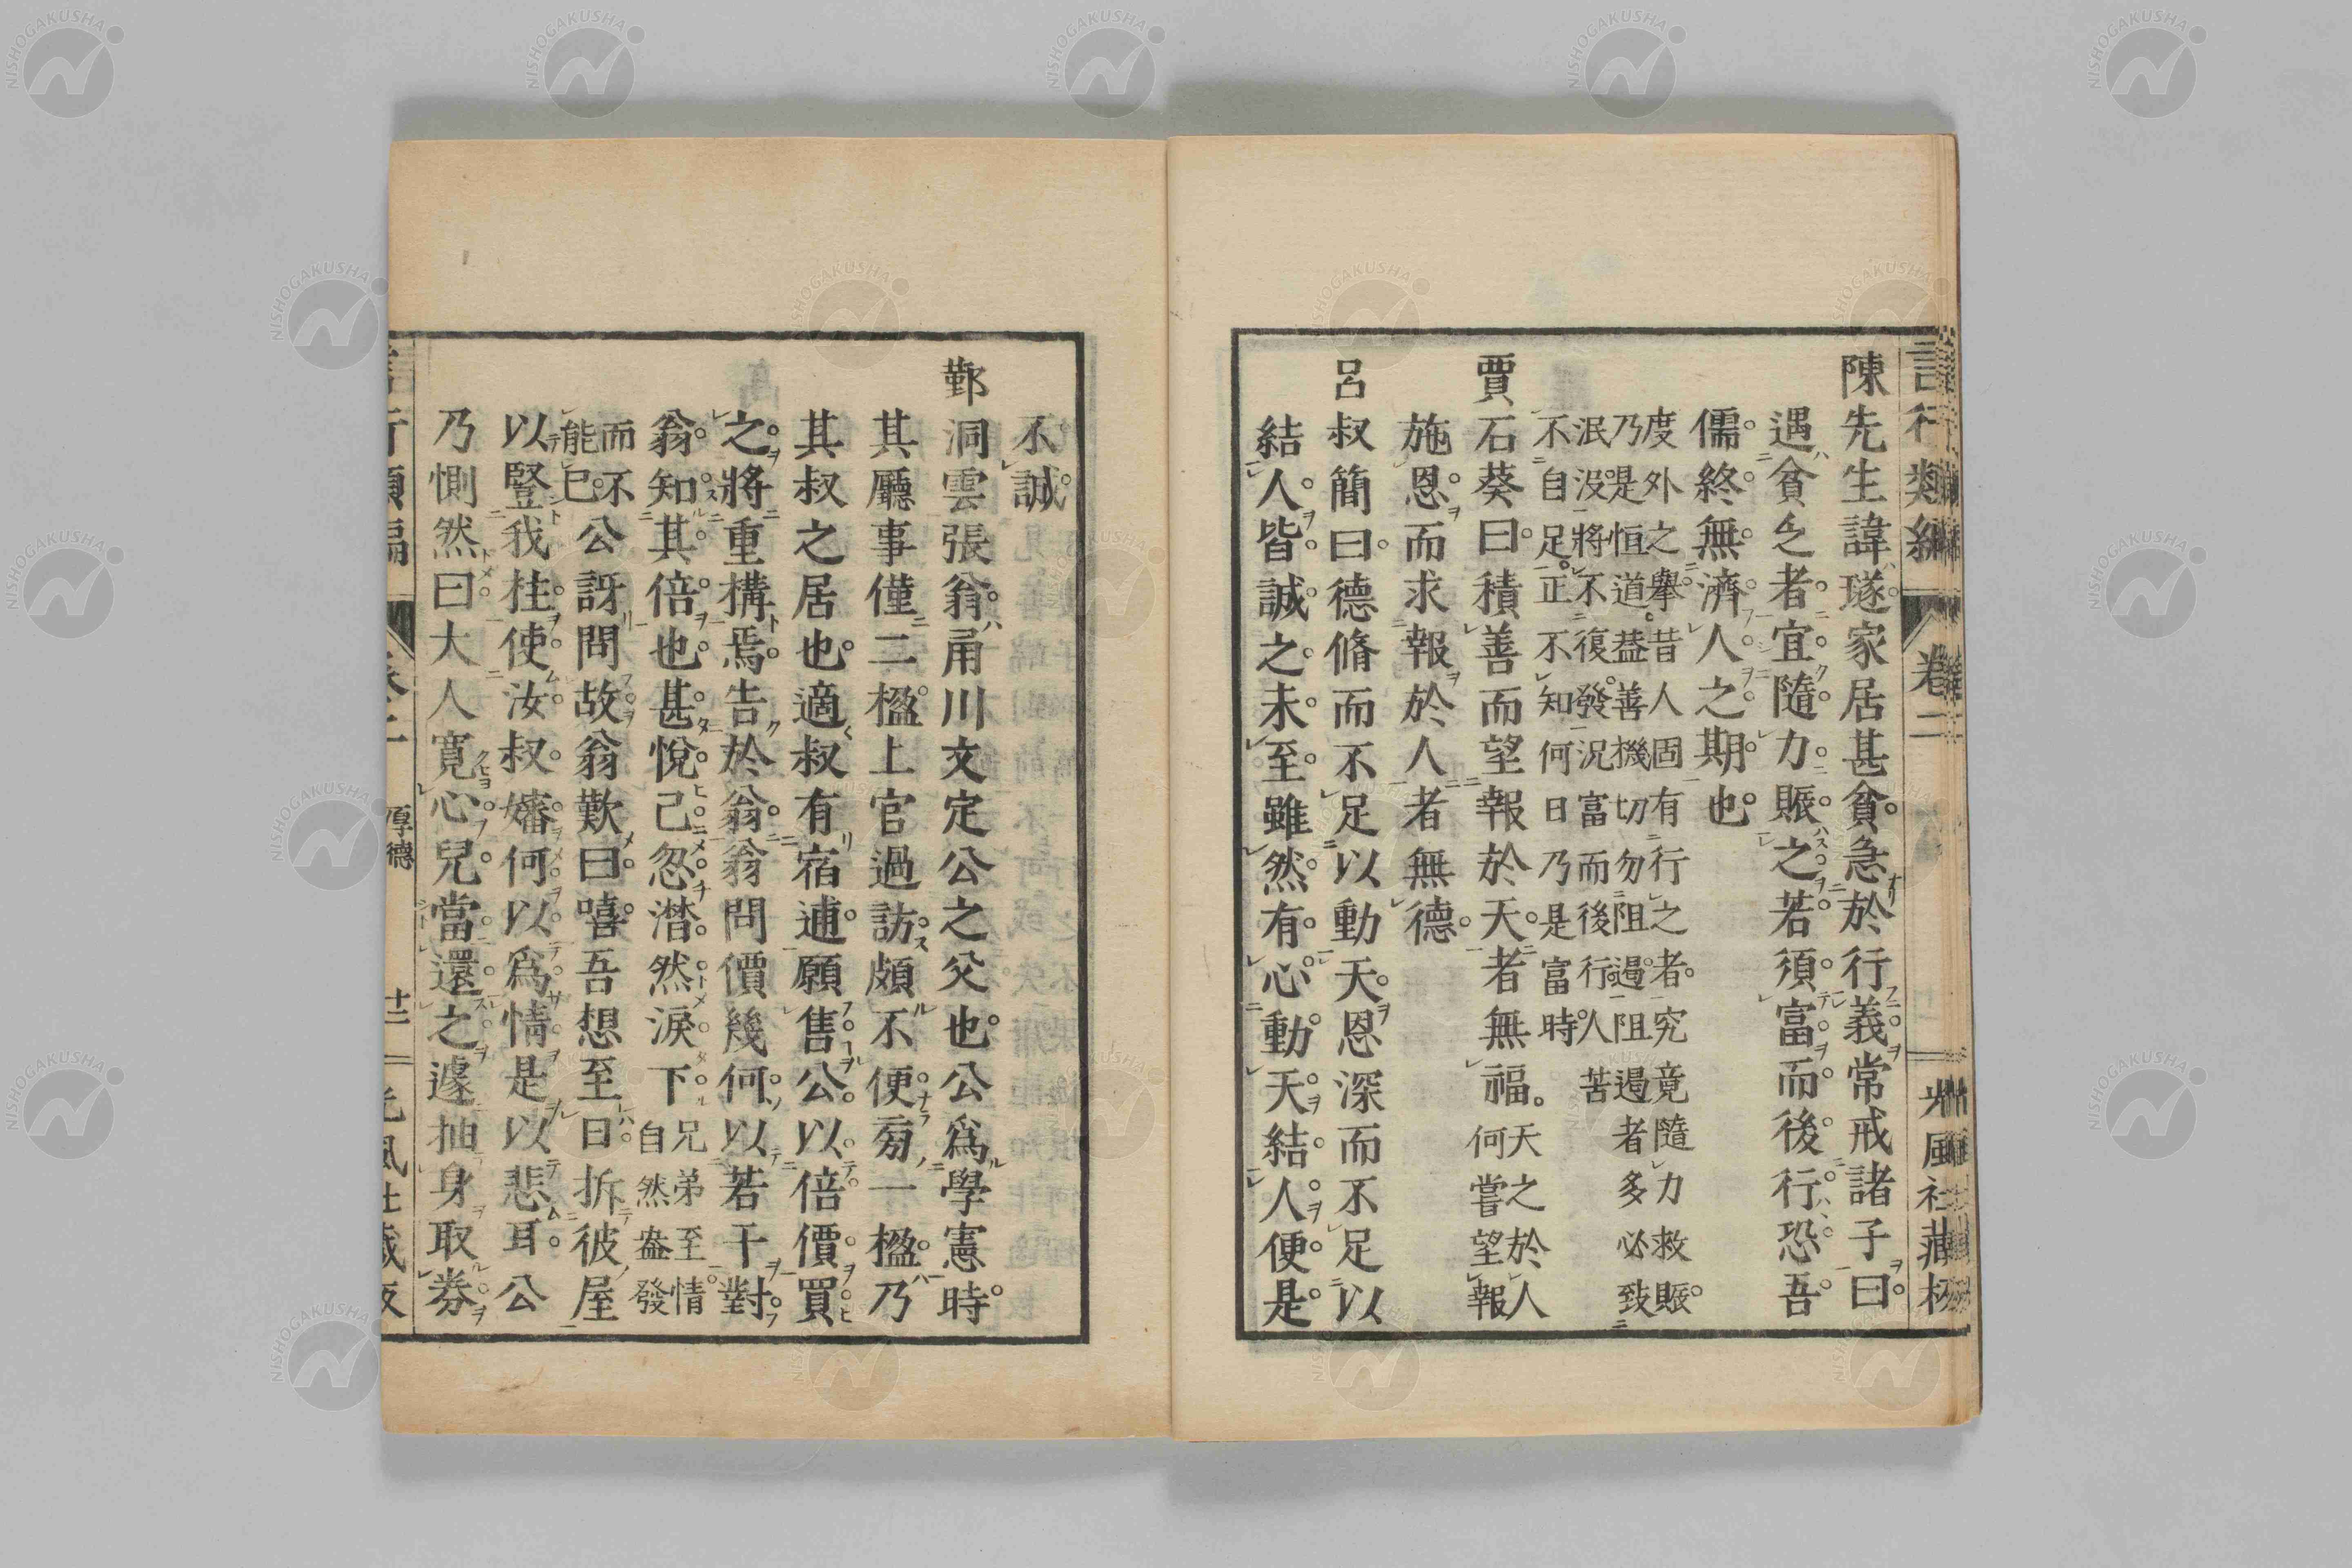 言行類編 卷二 光風社藏板
陳先生諱璲家居甚貧急於行義常戒諸子曰
遇貧乏者宜隨力賑之若須富而後行恐吾
儒終無濟人之期也
度外之擧昔人固有行之者究竟隨力救賑
乃是恒道益善機切勿阻遏阻遏者多必致
泯没將不復發況富而後行人苦
不自足正不知何日乃是富時
賈石葵曰積善而望報於天者無福天之於人
何嘗望報
施恩而求報於人者無德
呂叔簡曰德脩而不足以動天恩深而不足以
結人皆誠之未至雖然有心動天結人便是
不誠
鄞洞雲張翁甬川文定公之父也公爲學憲時
其廳事僅二楹上官過訪頗不便旁一楹乃
其叔之居也適叔有宿逋願售公以倍價買
之將重構焉告於翁翁問價幾何以若干對
翁知其倍也甚悅己忽潸然淚下兄弟至情
自然盎發
而不
能已公訝問故翁歎曰嘻吾想至日拆彼屋
以豎我柱使汝叔嬸何以爲情是以悲耳公
乃惻然曰大人寬心兒當還之遽抽身取券
言行類編 卷二 厚德 廿二 光風社藏板
NISHOGAKUSHA